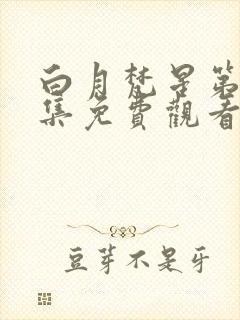 白月梵星第
集免費觀看
豆芽不是牙